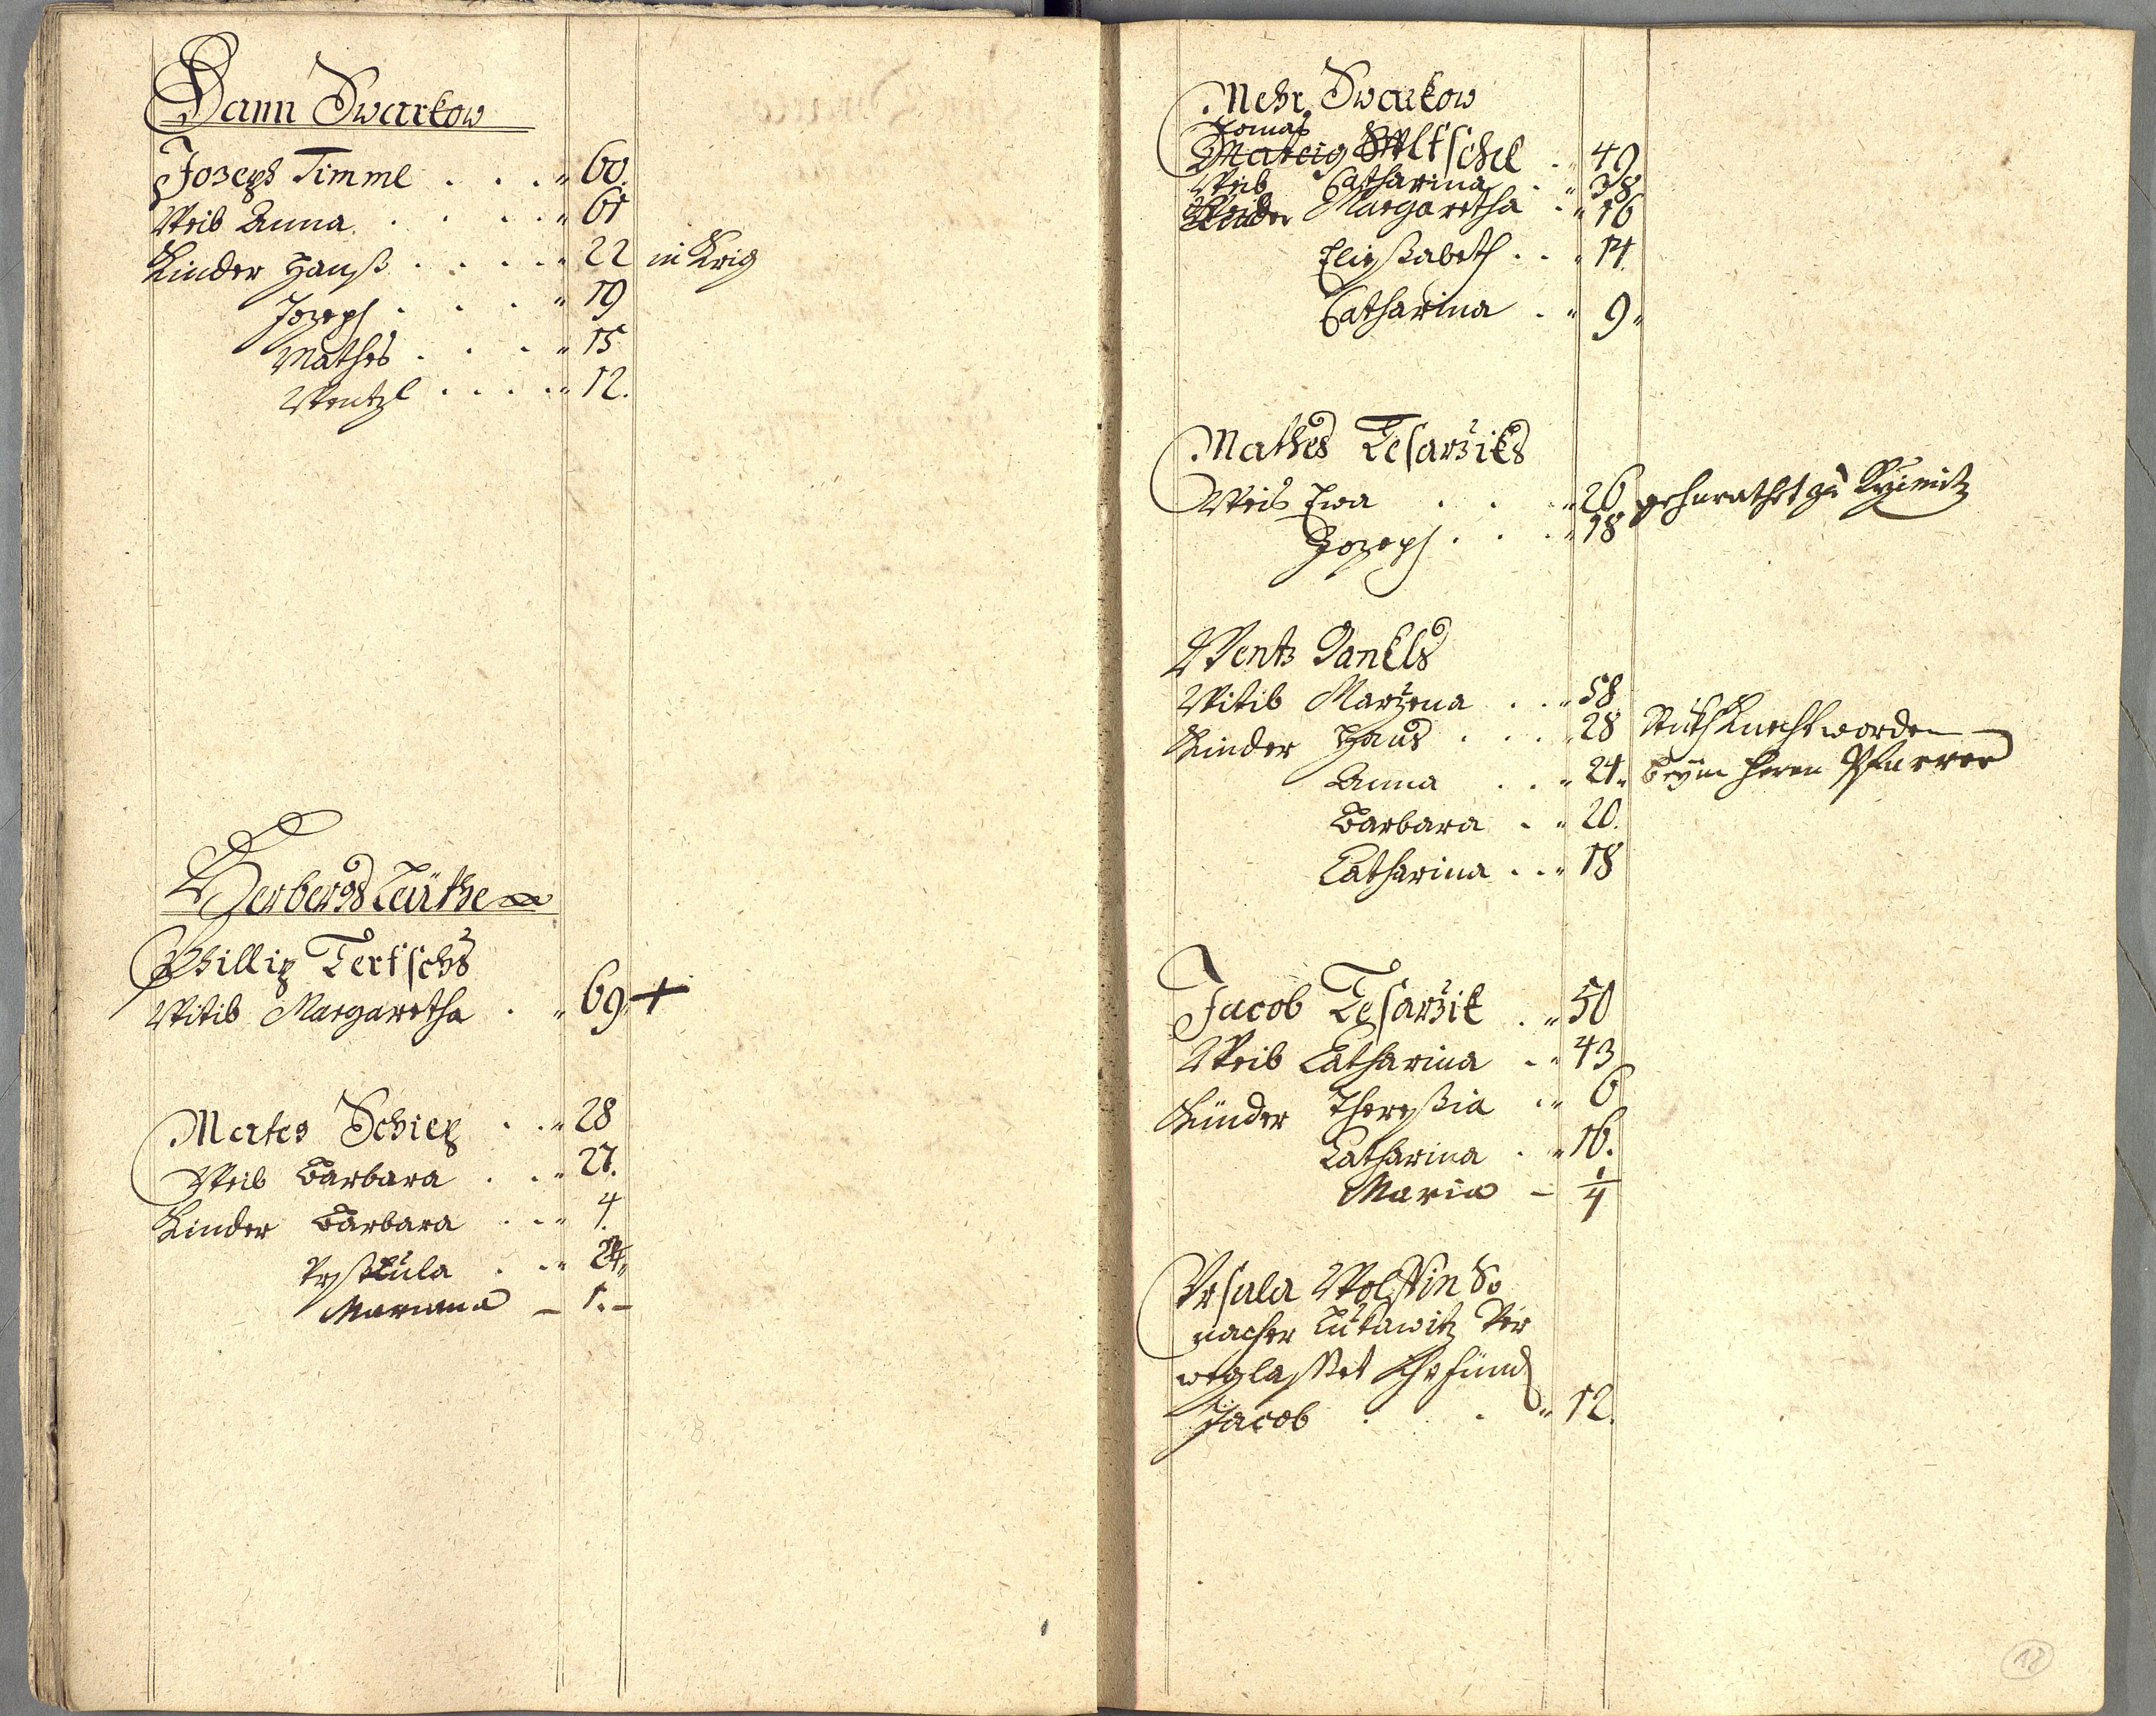 Dann Swarkow
Joseph Timml . . . " 60.
Weib Anna . . . . " 61
Kinder Hanß . . . . " 22 in Krig
Joseph . . . " 19
Mathes . . . " 15
Wentzl . . . . " 12.
Herbergs Leüthe
Phillip Tertschs
Witib Margaretha . " 69 +
Mates Schiep . . " 28
Weib Barbara . . " 27.
Kinder Barbara . . " 4.
. . "
Mariana – 1. –
Mehr Swarkow
Tomas
Mateig Woltschel . " 49
Weib Catharina . " 38
Kinder Margaretha . " 16
Eließabeth . . " 14
Catharina . " 9 "
Mathes Tesarziks
Weib Ewa . . " 26 geheurathet zu
Joseph . . . " 18
Wentz Dankls
Witib Marzena . . " 58
Kinder Hans . . . " 28 Knecht worden
Anna . . " 24 " beym Herrn Pfarrer
Barbara . " 20.
Catharina . . " 18
Jacob Tesarzik . " 50
Weib Catharina . " 43
Künder Thereßia . " 6
Catharina . " 16.
Maria – 1/4
Ursula Wolffin So
nacher Lukawitz Ver
weglasset Ihr
Jacob . . " 12.
18